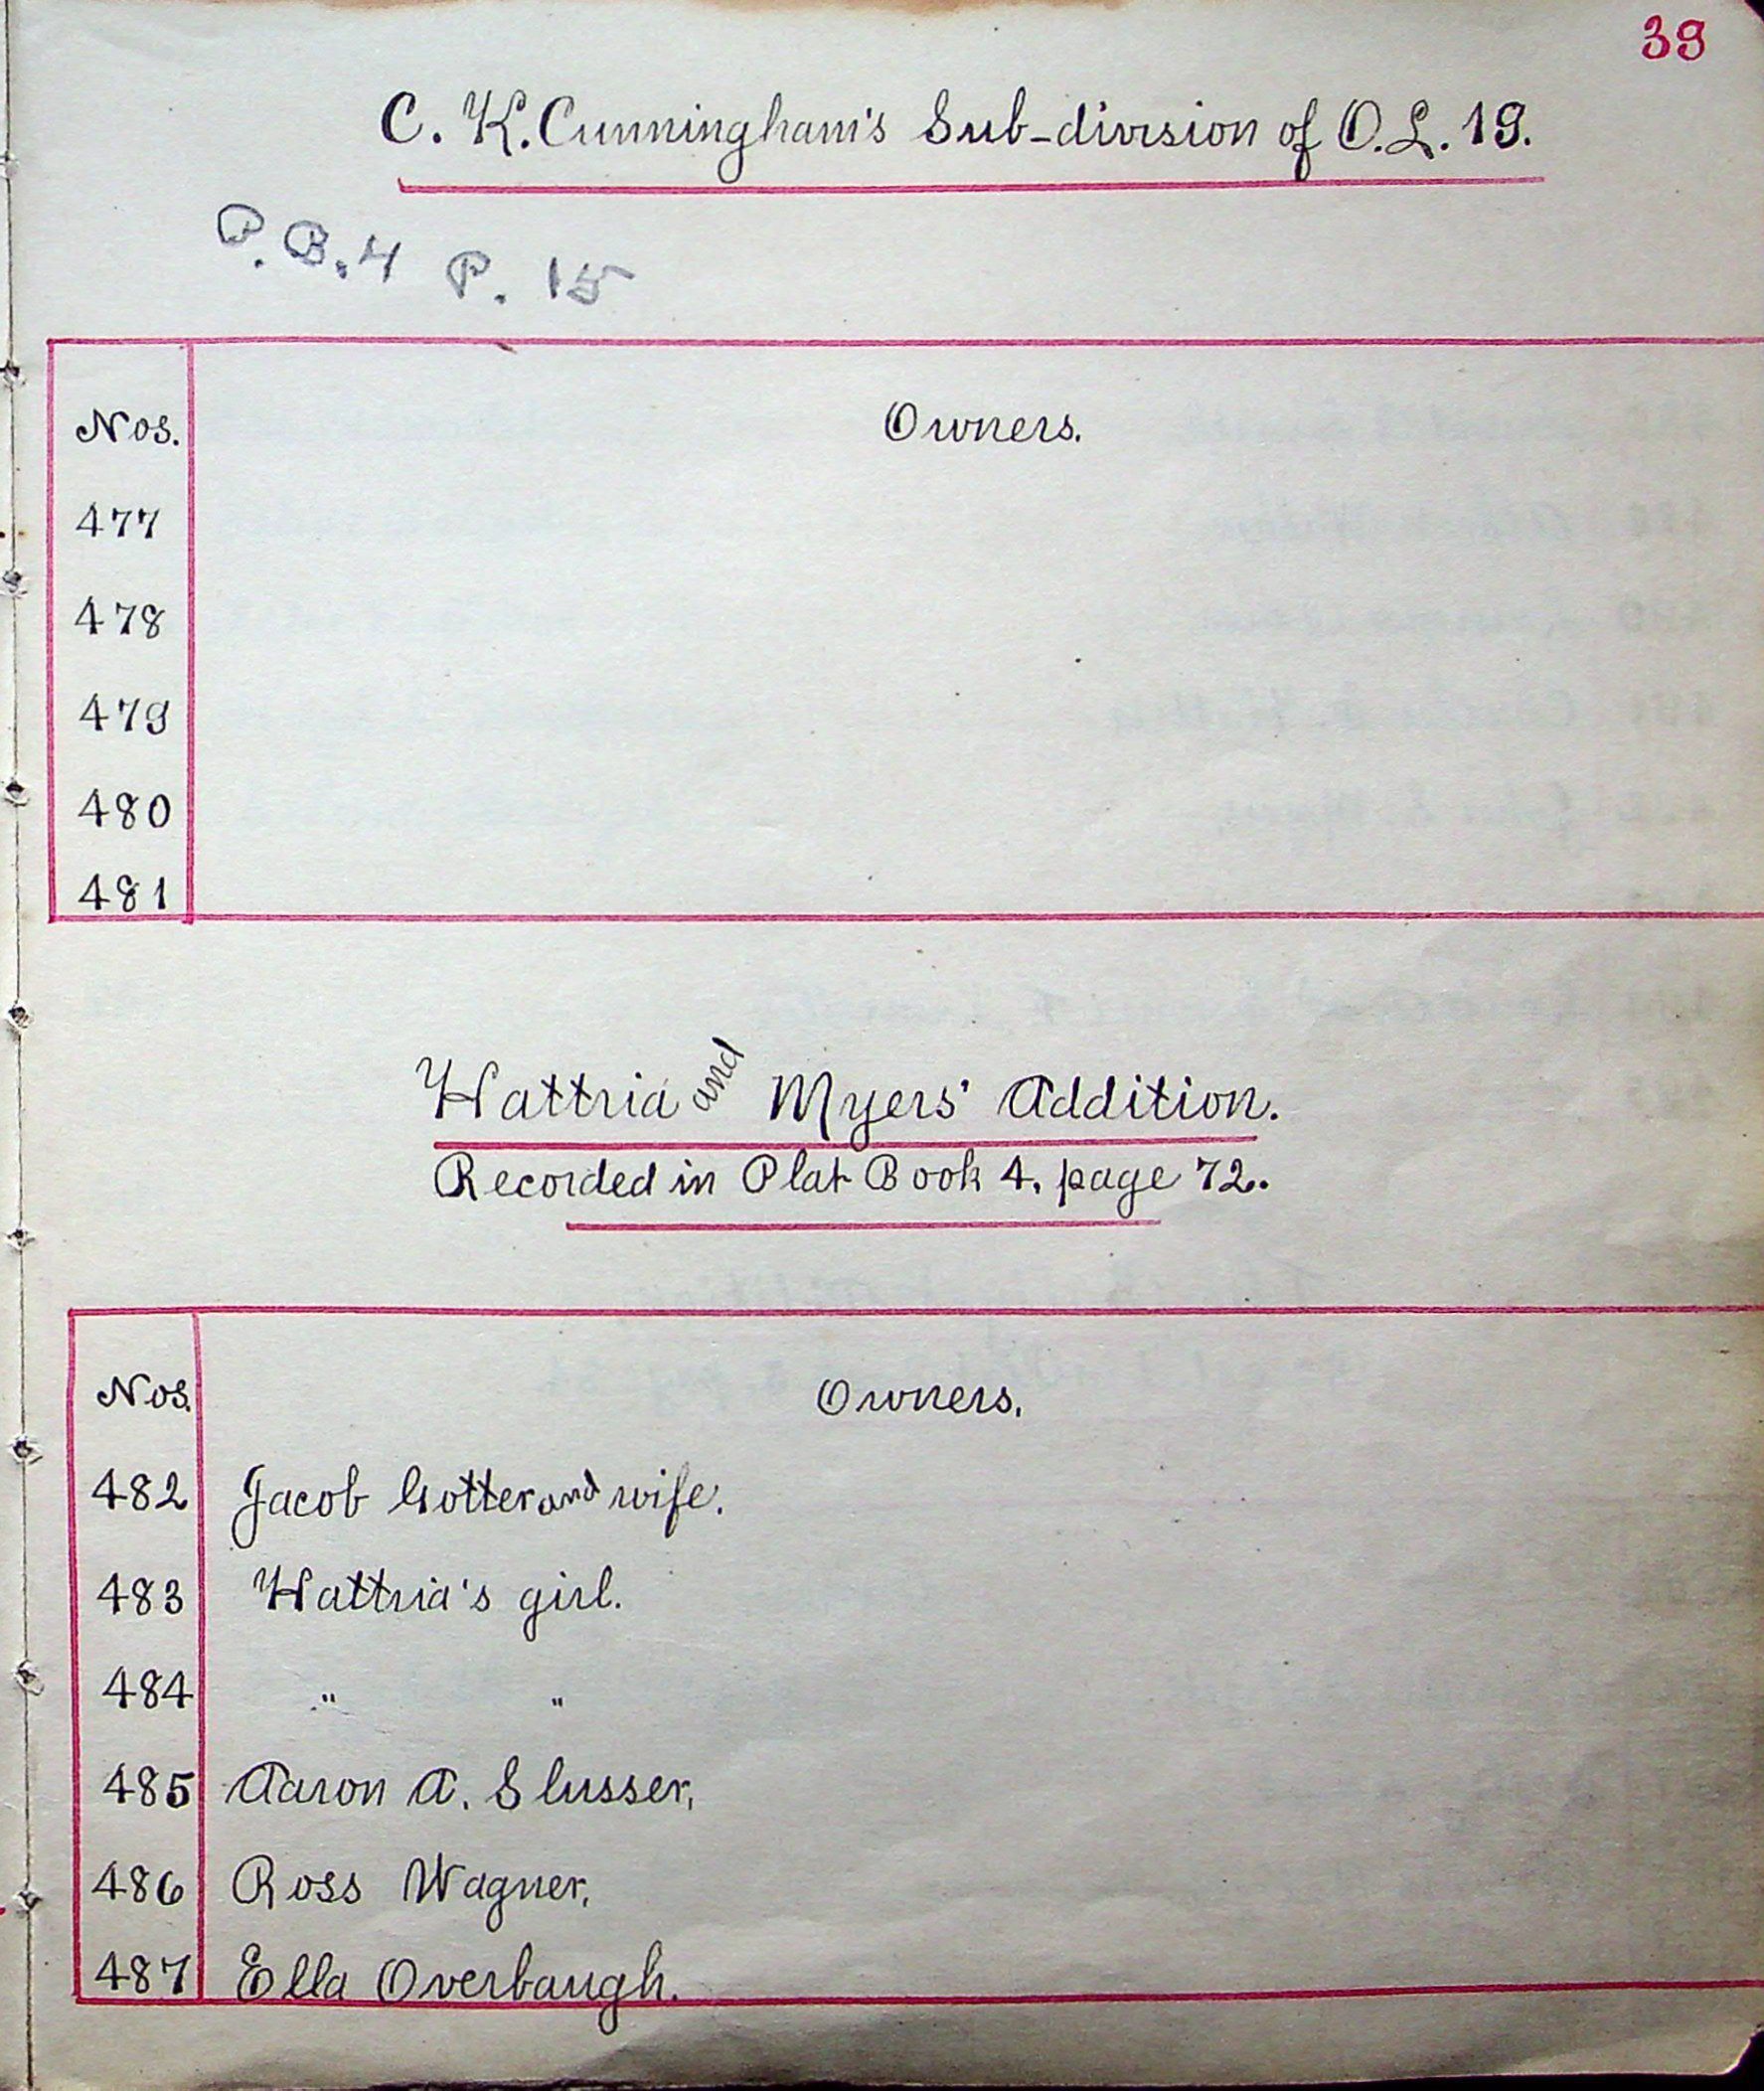 39
C. K. Cunningham's Sub-division of O.L. 19.
P.B.4 P. 15
Nos. Owners.
477
478
479
480
481
Wattria and Myers' Addition.
Recorded in Plat Book 4, page 72.
Nos. Owners.
482 Jacob Gotter and wife.
483 Wattria's girl.
484 " "
485 Aaron A. Slusser,
486 Ross Wagner,
487 Ella Overbaugh.